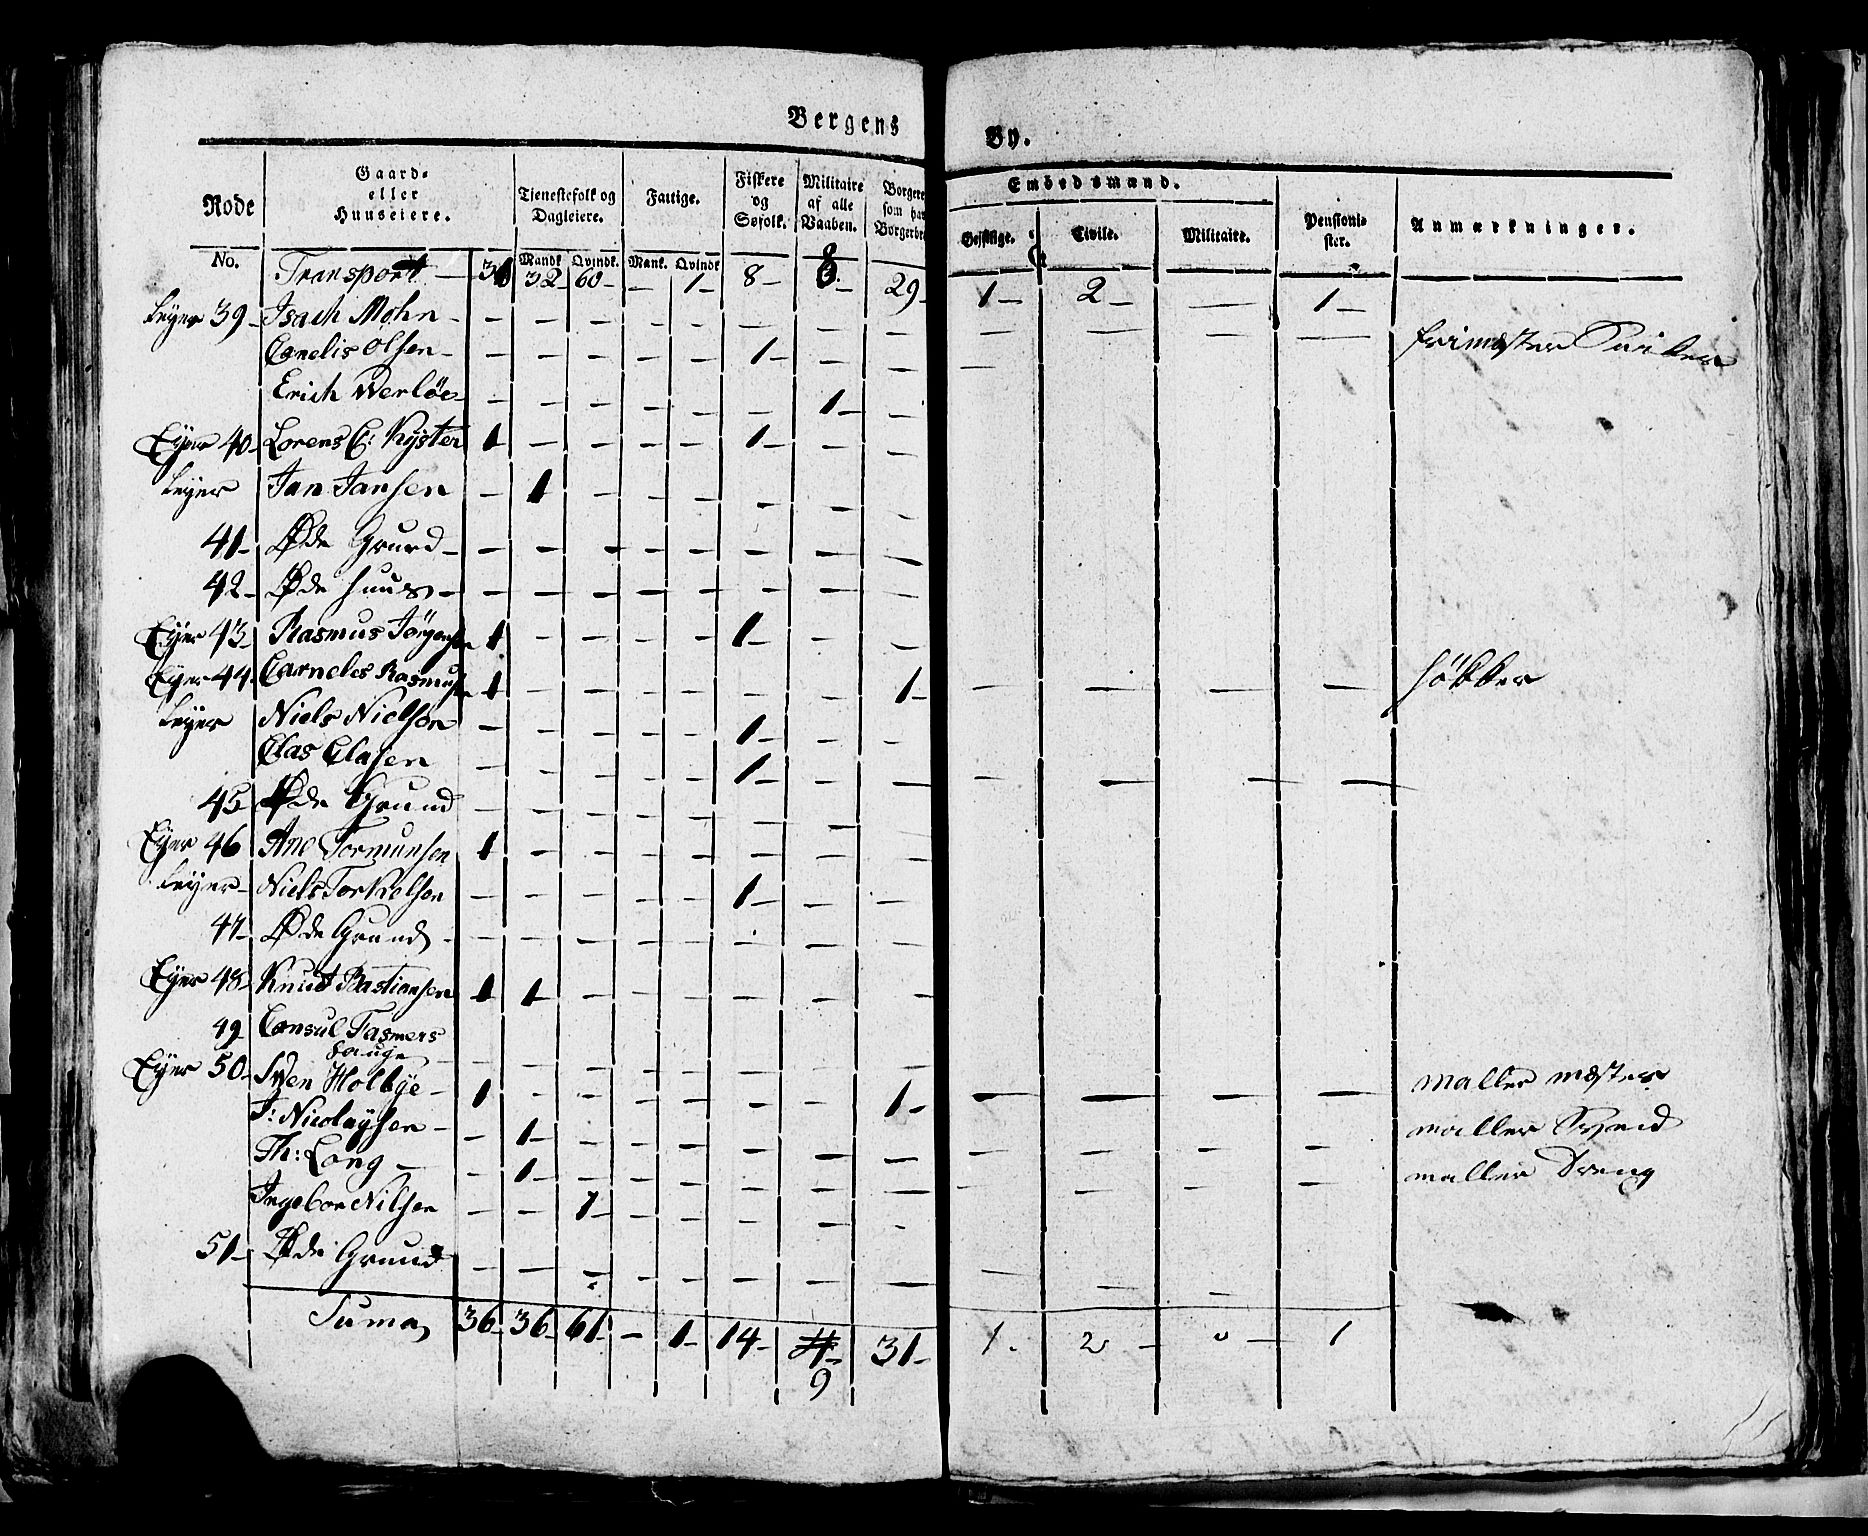 Bergens By.
Rode No. | Gaard- eller Huuseiere. | Tjenestefolk og Dagleiere. Mandk. Qvindk. | Fattige. Mank. Qvindk. | Fiskere og Søfolk. | Militaire af alle Vaaben. | Borgere som har Borgerbr | Embedsmænd. Geistlige. Civile. Militaire. | Pensioni- ster. | Anmærkninger.
Transport — 31 32 60 — 1 — 8 — 8 — 29 — 1 — 2 — — 1 —
Leyer 39 Isach Mohn — — — — — — — — — — — —
Cornelis Olsen — — — — — — 1 — — — — frimester
Erich Werløe — — — — — — — 1 — —
Eyer 40 Lorens C: Kyster 1 — — — — 1 — — —
Leyer Jan Jansen — 1 — — — — — —
41 Øde Grund — — — — — — — — —
42 Øde Huus — — — — — — — — —
Eyer 43 Rasmus Jörgensen 1 — — — — 1 — — —
Eyer 44 Carneles Rasmusen 1 — — — — — — 1 — — — — — Høkker
Leyer Niels Nielsen — — — — — 1 — — —
Clas Clasen — — — — — 1 — — — — — — —
45 Øde Grund — — — — — — — —
Eyer 46 Ane Tormunsen 1 — — — — — — —
Leyer Niels Torkelsen — — — — — 1 — — —
47 Øde Grund — — — — — — — — —
Eyer 48 Knud Bastiansen 1 1 — — — — — —
49 Consul Tasmers
Hauge — — — — — — — — —
Eyer 50 Sven Holbye — 1 — — — — — — 1 — — — — — maller mæster
T: Nicolaysen — — 1 — — — — — — — — — — — maller Svend
Th: Lang — — 1 — — — — — — — — — — — maller Dreng
Ingebor Nilsen — — 1 — — — — — —
51 Øde Grund — — — — — — — — — — — —
Suma 36 36 61 — 1 14 9 31 1. 2 — 0 — 1